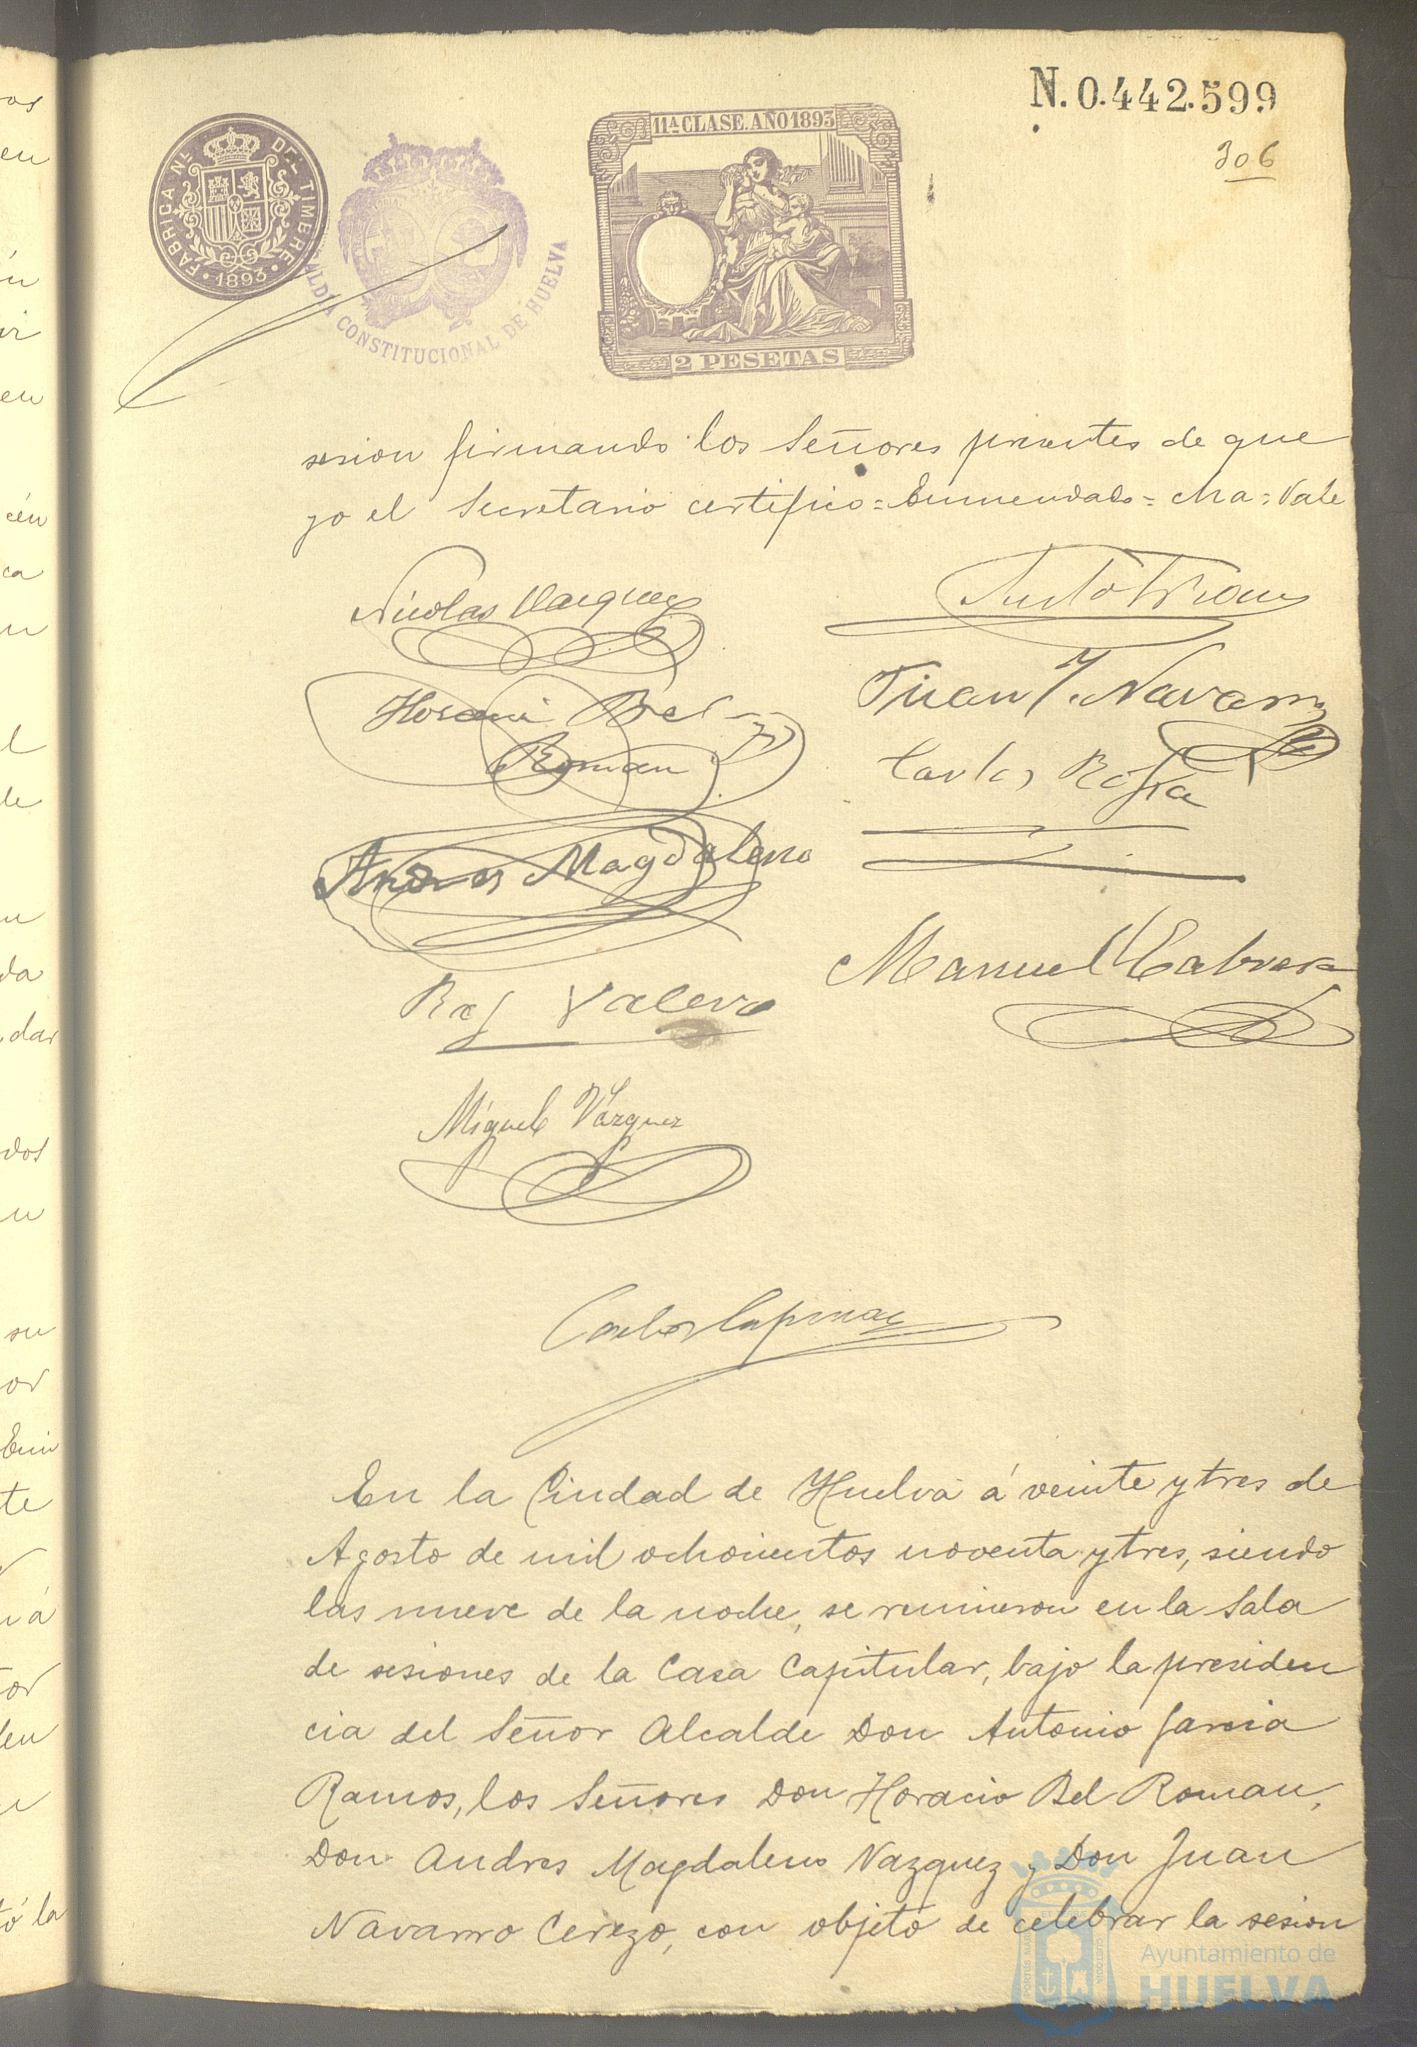 N. 0.442.599
306
FABRICA NL. DEL TIMBRE
1893
ALDIA CONSTITUCIONAL DE HUELVA
11A CLASE. AÑO 1893
2 PESETAS
sesion firmando los Señores presentes de que
yo el Secretario certifico = Enmendado = cha = Vale
Nicolas Vazquez
Justo
Horacio Bel
Roman
Juan J. Navarro
Carlos
Andres Magdaleno
Manuel Cabrera
Raf Valero
Miguel Vázquez
Carlos
En la Ciudad de Huelva á veinte y tres de
Agosto de mil ochocientos noventa y tres, siendo
las nueve de la noche, se reunieron en la Sala
de sesiones de la Casa Capitular, bajo la presiden
cia del Señor Alcalde Don Antonio Garcia
Ramos, los Señores Don Horacio Bel Roman,
Don Andres Magdaleno Vazquez y Don Juan
Navarro Cerezo, con objeto de celebrar la sesion
Ayuntamiento de
HUELVA